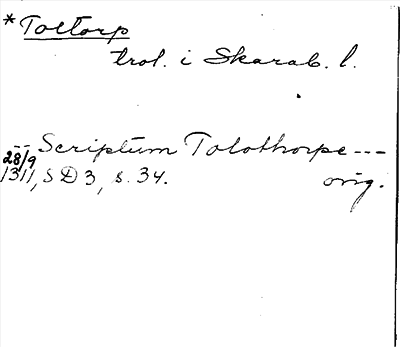 * Toltorp
trol. i Skarab. l.
-- Scriptum Tolothorpe ---
28/9
1311, SD 3, s. 34. orig.